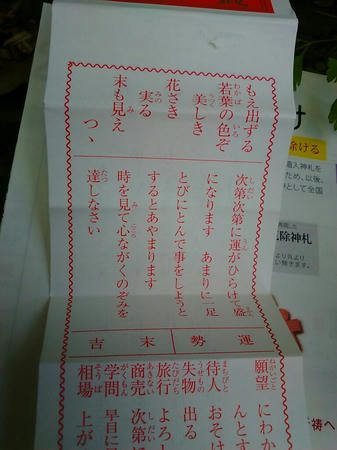 もえ出ずる
若葉の色ぞ
美しき
花さき
実る
末も見え
つゝ
次第次第に運がひらけて盛
になります　あまりに一足
とびにとんで事をしようと
するとあやまります
時を見て心ながくのぞみを
達しなさい
運勢
末吉
願望
にわか
んとす
待人
おそけ
失物
出る
旅行
よろし
商売
次第に
学問
早目に
相場
上が
除ける
除神札